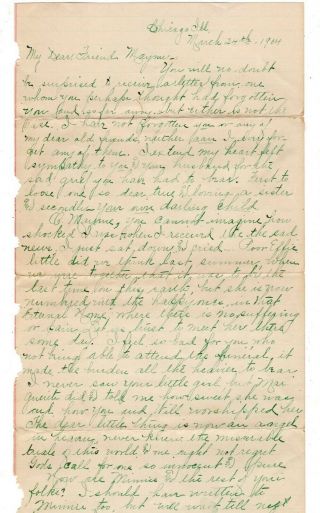 Chicago Ill
March 24th, 1904
My Dear Friend Mayme,
You will no doubt
be surprised to receive a letter from one
whom you perhaps thought had forgotten
you and is so far away. But either is not the
case. I have not forgotten you or any of
my dear old friends, neither can I ever for-
get any of them. I extend my heart felt
sympathy to you & your husband for the
sad grief you have had to bear. First to
loose one so dear, true & loving a sister
& secondly your own darling child.
O Mayme, you cannot imagine how
shocked I was when I received the sad
news. I just sat down & cried. Poor Effie
little did we think last summer, when
we were together, that it was to be the
last time on this earth, but she is now
numbered with the happy ones, in that
Eternal Home, where there is no suffering
or pain. Let us trust to meet her there
some day. I feel so bad for you, who
not being able to attend the funeral, it
made the burden all the heavier to bear.
I never saw your little girl but Mar-
guerite did & told me how sweet she was
and how you and all worshipped her.
The dear little thing is now an angel
in heaven, never knew the miserable
trials of this world & we might not regret
God's call for one so innocent & pure.
How are Minnie & the rest of your
folks? I should have written to
Minnie too, but will wait till next